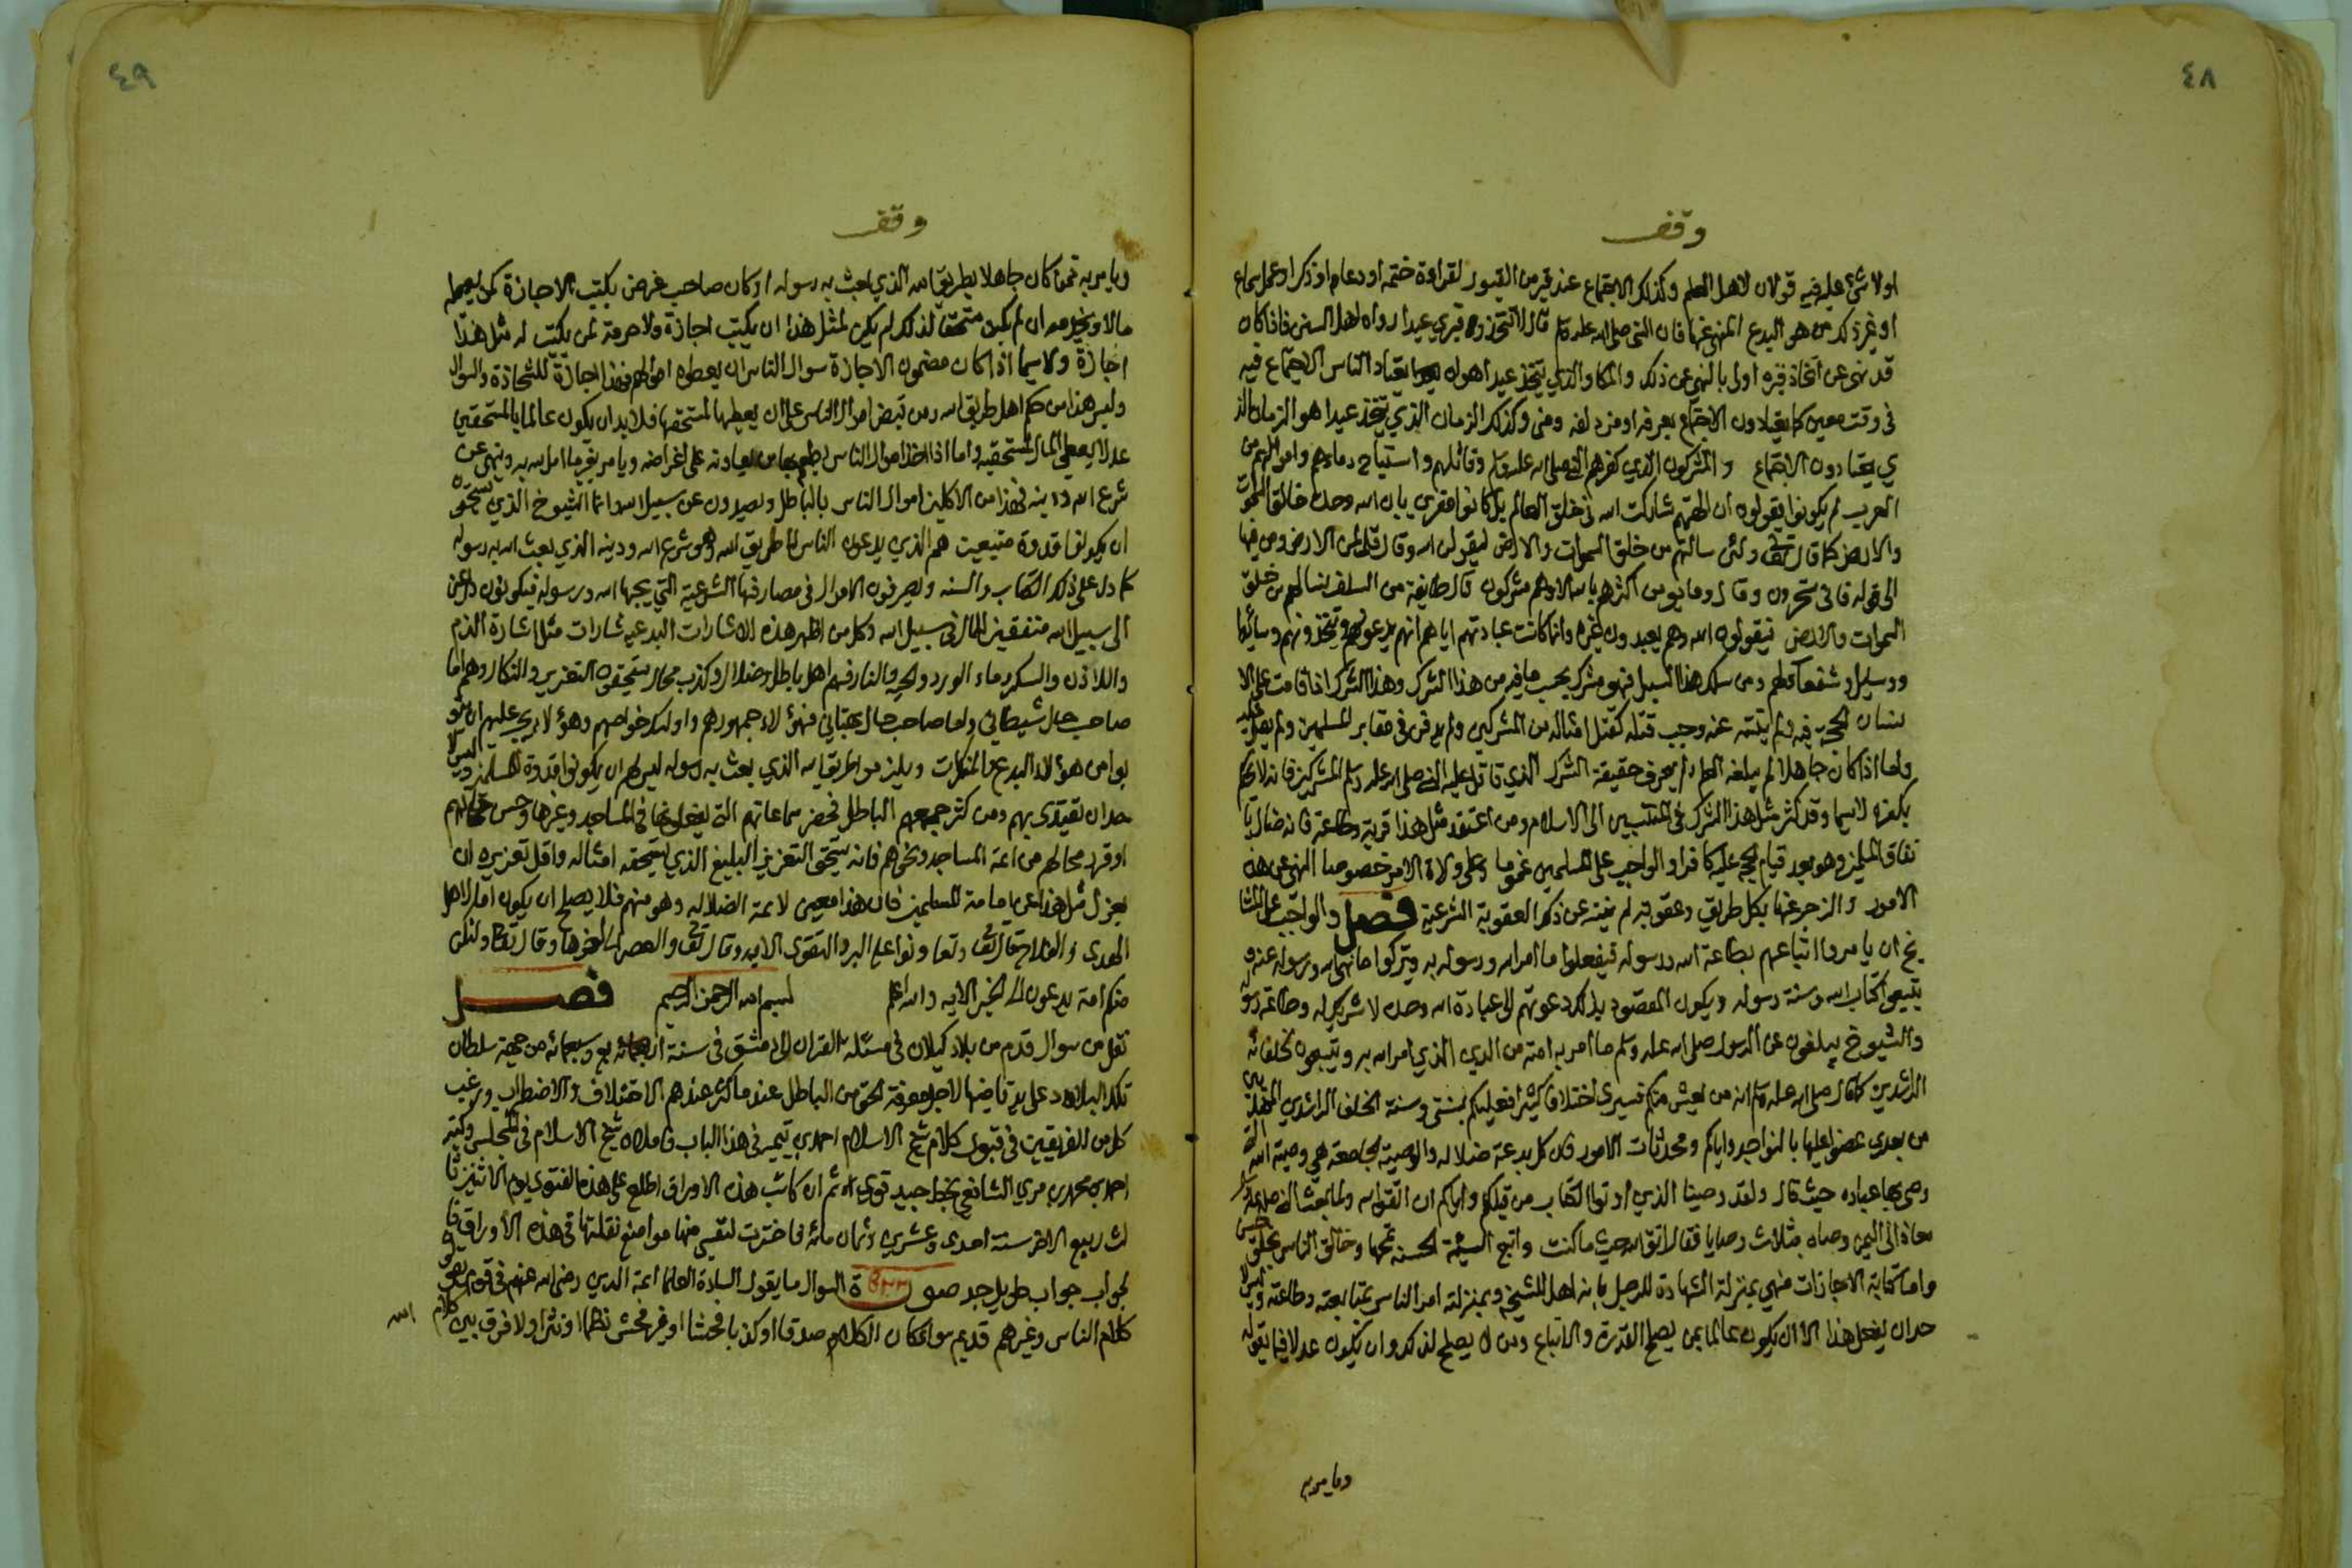 ٤٨
وقف
او لا شيء عليه فيه قولان لاهل العلم وكذلك الاجتماع عند قبر من القبور لقراءة ختمة او دعاء او ذكر او عمل سماع
او غير ذلك من هو البدع المنهي عنها فان النبي صلى الله عليه وسلم قال لا تتخذوا قبري عيدا رواه اهل السنن فاذا كان
قد نهى عن اتخاذ قبره اولى بالنهي عن ذلك والمكان الذي يتخذ عيدا هو الذي يعتاد الناس الاجتماع فيه
في وقت معين كما يعتادون الاجتماع بعرفه او مزدلفه ومنى وكذلك الزمان الذي يتخذ عيدا هو الزمان الذ
ي يعتادون الاجتماع والمشركون الذين كفرهم النبي صلى الله عليه وسلم وقاتلهم واستباح دماءهم واموالهم من
العرب لم يكونوا يقولون ان الهتهم شاركت الله في خلق العالم بل كانوا مقرين بان الله وحده خالق السموات
والارض كما قال تعالى ولئن سالتهم من خلق السموات والارض ليقولن الله وقال قل لمن الارض ومن فيها
الى قوله فانى تسحرون وقال وما يؤمن اكثرهم بالله الا وهم مشركون قال طايفة من السلف تسالهم من خلق
السموات والارض فيقولون الله وهم يعبدون غيره وانما كانت عبادتهم اياهم انهم يدعونهم ويتخذونهم وسائط
ووسايل وشفعا لهم ومن سلك هذا السبيل فهو مشرك بحسب ما فيه من هذا الشرك وهذا الشرك اذا قامت على الا
نسان الحجة فيه ولم ينته عنه وجب قتله كقتل امثاله من المشركين ولم يدفن في مقابر المسلمين ولم يصل عليه
واما اذا كان جاهلا لم يبلغه العلم ولم يعرف حقيقة الشرك الذي قاتل عليه النبي صلى الله عليه وسلم المشركين فانه لا يحكم
بكفره لا سيما وقد كثر مثل هذا الشرك في المنتسبين الى الاسلام ومن اعتقد مثل هذا قربة وطاعة فانه ضال با
تفاق المسلمين وهو بعد قيام الحجة عليه كافر او الواجب على المسلمين عموما وعلى ولاة الامر خصوصا النهي عن هذه
الامور والزجر عنها بكل طريق وعقوبة من لم ينته عن ذلك العقوبة الشرعية فصل والواجب على المشا
يخ ان يامروا اتباعهم بطاعة الله ورسوله فيفعلوا ما امر الله ورسوله به ويتركوا ما نهى الله ورسوله عنه و
يتبعوا كتاب الله وسنة رسوله ويكون المقصود بذلك دعوتهم الى عبادة الله وحده لا شريك له وطاعة رسوله
والشيوخ يبلغون عن الرسول صلى الله عليه وسلم ما امر به امته من الدين الذي امر الله به ويتبعون خلفائه
الراشدين كما قال صلى الله عليه وسلم انه من يعش منكم فسيرى اختلافا كثيرا فعليكم بسنتي وسنة الخلفا الراشدين المهديين
من بعدي عضوا عليها بالنواجذ واياكم ومحدثات الامور فان كل بدعة ضلالة والوصية الجامعة هي وصية الله التي
وصى بها عباده حيث قال ولقد وصينا الذين اوتوا الكتاب من قبلكم واياكم ان اتقوا الله ولما بعث النبي صلى الله عليه وسلم
معاذا الى اليمن وصاه بثلاث وصايا فقال اتق الله حيث ما كنت واتبع السيئة الحسنة تمحها وخالق الناس بخلق حسن
واما كتابة الاجازات فهي بمنزلة الشهادة للرجل بانه اهل للمشيخة وبمنزلة امر الناس بمتابعته وطاعته وليس لا
حد ان يفعل هذا الا ان يكون عالما بمن يصلح للقدوة والاتباع ومن لا يصلح لذلك وان يكون عدلا فيما يقوله
ويامر به
٤٩
وقف
ويامر به فمن كان جاهلا بطريق الله الذي بعث به رسوله او كان صاحب غرض يكتب الاجازة لمن يعطيه
مالا ويخدمه ان لم يكن مستحقا لذلك لم يكن لمثل هذا ان يكتب اجازة ولا حرمة لمن يكتب له مثل هذا
اجازة ولا سيما اذا كان مضمون الاجازة سوال الناس ان يعطوه اموالهم فهذا اجازة للشحاذة والسوال
وليس هذا من حكم اهل طريق الله ومن قبض اموال الناس على ان يعطيها لمستحقها فلا بد ان يكون عالما بالمستحقين
عدلا يعطي المال لمستحقيه واما اذا اخذ اموال الناس يعاونه على اغراضه ويامر بغير ما امر الله به وينهى عن
شرع الله ودينه فهذا من الاكلين اموال الناس بالباطل ويصدون عن سبيل الله وانما الشيوخ الذين يستحقون
ان يكونوا قدوة متبعين هم الذين يدعون الناس الى طريق الله وهو شرع الله ودينه الذي بعث الله به رسوله
كما دل على ذلك الكتاب والسنه ويصرفون الاموال في مصارفها الشرعية التي يحبها الله ورسوله فيكونون داعين
الى سبيل الله منفقين المال في سبيل الله وكل من اظهر هذه الاشارات البدعيه شارات مثل اشارة الدم
واللاذن والسكر وماء الورد والحية والنار فهم اهل باطل وضلال وكذب ومحال يستحقون التعزير والنكال وهم اما
صاحب حال شيطاني واما صاحب حال بهتاني فهؤلاء جمهورهم واولئك خواصهم وهؤلاء يجب عليهم ان يتو
بوا من هؤلاء البدع والمنكرات ويلزموا طريق الله الذي بعث به رسوله ليس لهم ان يكونوا قدوة للمسلمين وليس لا
حد ان يقتدي بهم ومن كثر جمعهم الباطل فحضر سماعاتهم التي يفعلونها في المساجد وغيرها وحسن حالهم
او قرر محالهم من ائمة المساجد ونحوهم فانه يستحق التعزير البليغ الذي يستحقه امثاله واقل تعزيره ان
يعزل مثل هذا عن امامة المسلمين فان هذا معين لائمة الضلالة وهو منهم فلا يصلح ان يكون اماما لاهل
الهدى والفلاح قال تعالى وتعاونوا على البر والتقوى الايه وقال تعالى والعصر الى اخرها وقال تعالى ولتكن
منكم امة يدعون الى الخير الايه والله اعلم بسم الله الرحمن الرحيم فصل
نقل من سوال قدم من بلاد كيلان في مسئلة القران الى دمشق في سنة اربع وسبعمائه من جهة سلطان
تلك البلاد على يد قاضيها لاجل معرفة الحق من الباطل عندما كثر عندهم الاختلاف والاضطراب ورغب
كل من الفريقين في قبول كلام شيخ الاسلام احمد بن تيميه في هذا الباب فاملاه شيخ الاسلام في المجلس وكتبه
احمد بن محمد بن مري الشافعي بخط جيد قوي ثم ان كاتب هذه الاوراق اطلع على هذه الفتوى يوم الاثنين ثا
لث ربيع الاخر سنة احدى وعشرين وثمان مائة فاخترت لنفسي منها مواضع نقلتها في هذه الاوراق فا
لجواب جواب طويل جدا صورة السوال ما يقول السادة العلما ائمة الدين رضي الله عنهم في قوم يقولون
كلام الناس وغيرهم قديم سوا كان الكلام صدقا او كذبا فحشا او غير فحش نظما او نثرا ولا فرق بين كلام
الله